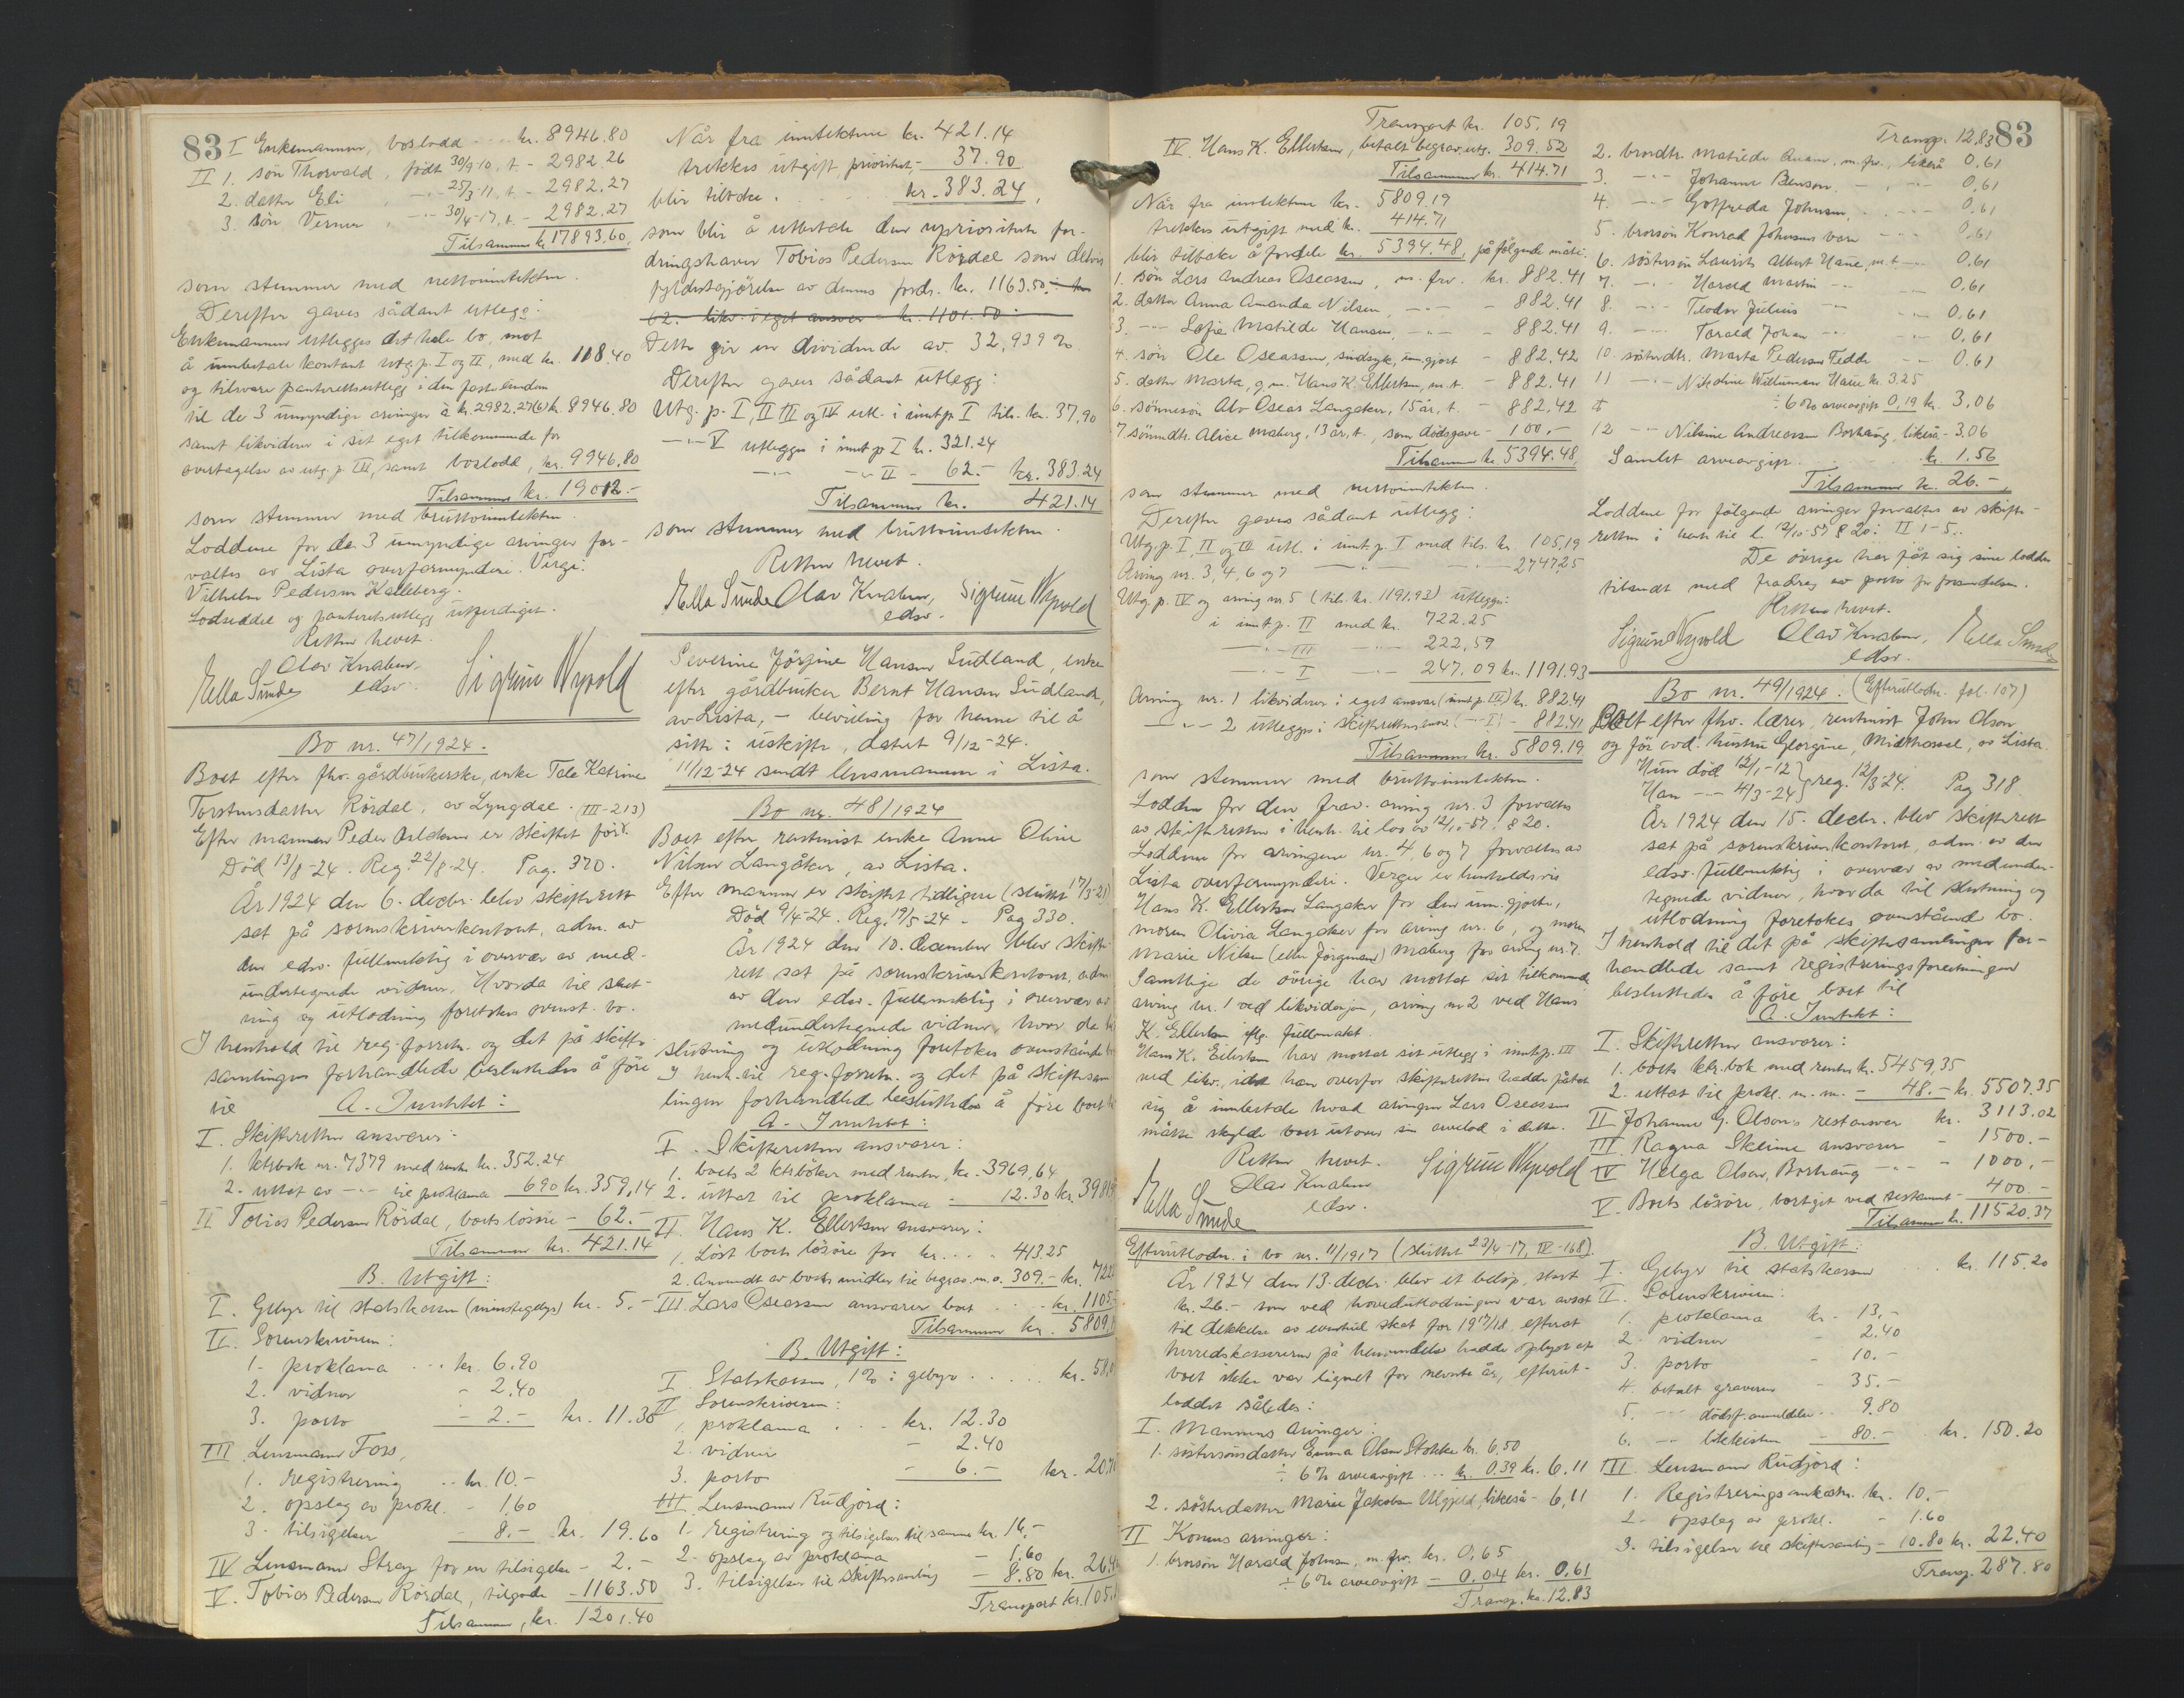 83
I Enkemannen, boslodd kr. 8946.80
II 1. søn Thorvald, født 30/9-10, t. - 2982.26
2. datter Eli, -"- 25/3-11, t. - 2982.27
3. søn Verner, -"- 30/4-17, t. - 2982.27
Tilsammen kr. 17893.60,
som stemmer med nettoinntekten.
Derefter gaves sådant utlegg:
Enkemannen utlegges det hele bo, mot
å innbetale kontant utg. p. I og II, med kr. 118.40
og tilsvare panterettsutlegg i den faste eiendom
til de 3 umyndige arvinger à kr. 2982.27(6) kr. 8946.80
samt likviderer i sit eget tilkommende for
overtagelse av utg. p. III, samt boslodd, kr. 9946.80
Tilsammen kr. 19012.-
som stemmer med bruttoinntekten.
Loddene for de 3 umyndige arvinger for-
valtes av Lista overformynderi. Verge:
Vilhelm Pedersen Kalleberg.
Lodseddel og panteretsutlegg utferdiget.
Retten hevet.
Olav Knaben,
edsv.
Mella Sunde
Sigrun Nypold
Bo nr. 47/1924.
Boet efter fhv. gårdbrukerske, enke Tale Katrine
Torstensdatter Rördal, av Lyngdal. (III-213)
Efter mannen Peder er skiftet før.
Død 13/8-24. Reg. 22/8-24. Pag. 370.
År 1924 den 6. decbr. blev skifterett
sat på sorenskriverkontoret, adm. av
den edsv. fullmektig i overvær av med-
undertegnede vidner. Hvorda til slut-
ning og utlodning foretokes ovenst. bo.
I henhold til reg. forretn. og det på skifte-
samlingen forhandlede besluttedes å føre
til A. Inntekt:
I. Skifteretten ansvarer:
1. ktrbok nr. 7379 med renter kr. 352.24
2. uttat av -"- til proklama 6.90 kr. 359,14
II Tobias Pedersen Rördal, boets løsøre - 62.-
Tilsammen kr. 421.14
B. Utgift:
I. Gebyr til statskassen (minstegebyr) kr. 5.-
II. Sorenskriveren:
1. proklama ... kr. 6.90
2. vidner - 2.40
3. porto - 2.- kr. 11.30
III Lensmann Foss,
1. registrering .. kr. 10.-
2. opslag av prokl. - 1.60
3. tilsigelser - 8.- kr. 19.60
IV Lensmann Stray for en tilsigelse - 2.-
V. Tobias Pedersen Rördal, tilgode - 1163.50
Tilsammen, kr. 1201.40
Når fra inntekten kr. 421.14
trekkes utgift prioritet, - 37.90
blir tilbake kr. 383.24,
som blir å utbetale den uprioriterte for-
dringshaver Tobias Pedersen Rördal som delvis
fyldestgjørelse av dennes fordr. kr. 1163.50.
62. likv. i eget ansvar - kr. 1101.50.
Dette gir en dividende av 32,939 %
Derefter gaves sådant utlegg:
Utg. p. I, II III og IV utl. i innt. p. I tils. kr. 37,90
-"- V utlegges i innt. p. I kr. 321.24
-"- -"- II - 62.- kr. 383.24
Tilsammen kr. 421.14
som stemmer med bruttoinntekten.
Retten hevet.
Mella Sunde Olav Knaben, Sigrun Nypold
edsv.
Severine Jörgine Hansen Sudland, enke
efter gårdbruker Bernt Hansen Sudland,
av Lista, - bevilling for henne til å
sitte i uskifte, datert 9/12-24.
11/12-24 sendt lensmannen i Lista.
Bo nr. 48/1924
Boet efter rentenist enke Anne Oline
Nilsen Langåker, av Lista.
Efter mannen er skiftet tidligere (sluttet 17/3-21)
Død 9/4-24. Reg. 19/5-24 - Pag 330.
År 1924 den 10. december blev skifte-
rett sat på sorenskriverkontoret, adm
av den edsv. fullmektig i overvær av
medundertegnede vidner, hvor da til
slutning og utlodning foretokes ovenstående
I henh. til reg. forretn. og det på skiftesam
lingen forhandlede besluttedes å føre boet
A. Inntekt:
I. Skifteretten ansvarer:
1. boets 2 ktrbøker med renter, kr. 3969,64
2. uttat til proklama - 12.30 kr. 3981
II. Hans K. Ellertsen ansvarer:
1. Løst boets løsøre for kr. ... 413.25
2. Anvendt av boets midler til begrav. m. o. 309.- kr. 722
III Lars Oseassen ansvarer boet .. kr. 1105
Tilsammen kr. 5809
B. Utgift:
I. Statskassen, 1% i gebyr ..... kr. 58,
II Sorenskriveren:
1. proklama . . kr. 12.30
2. vidner - 2.40
3. porto - 6.- kr. 20.7
III. Lensmann Rudjord:
1. registrering og tilsigelser til samme kr. 16.-
2. opslag av proklama - 1.60
3. tilsigelser til skiftesamling - 8.80 kr. 26.4
Transport kr. 105,
Transport kr. 105,19
IV. Hans K. Ellertsen, betalt begrav. utg. 309.52
Tilsammen kr. 414.71
Når fra inntekten kr. 5809.19
trekkes utgift med kr. 414.71
blir tilbake å fordele kr. 5394.48, på følgende måte:
1. søn Lars Andreas Oseassen, m. frv. kr. 882.41
2. datter Anna Amanda Nilsen, -"- - 882.41
3. -"- Sofie Matilde Hansen, -"- - 882.41
4. søn Ole Oseassen, sindsyk, um.gjort - 882.42
5. datter Marta, g.m. Hans K. Ellertsen, m. t. - 882.41
6. sønnesøn Alv Oseas Langaker, 15 år, t. - 882.42
7. sønnedtr. Alice Maberg, 13 år, t., som dødsgave - 100.-
Tilsammen kr. 5394.48,
som stemmer med nettoinntekten.
Derefter gaves sådant utlegg:
Utg. p. I, II og III utl. i innt. p. I med tils. kr. 105,19
Arving nr. 3, 4, 6 og 7 -"- -"- 2747.25
Utg. p. IV og arving nr. 5 (tils. kr. 1191.93) utlegges:
i innt. p. II med kr. 722.25
-"- III -"- 222,59
-"- I -"- 247.09 kr. 1191.93
Arving nr. 1 likviderer i eget ansvar (innt. p. III) kr. 882.41
-"- 2 utlegges i skifterettens ansv. (-"- I) - 882.41
Tilsammen kr. 5809.19
som stemmer med bruttoinntekten.
Lodden for den frav. arving nr. 3 forvaltes
av skifteretten i henh. til lov av 12/10-57 § 20.
Loddene for arvingene nr. 4, 6 og 7 forvaltes av
Lista overformynderi. Verger er henholdsvis
Hans K. Ellertsen Langaker for den um.gjorte,
moren Olivia Langaker for arving nr. 6, og moren
Marie Nilsen (eller Jørgensen) Maberg for arving nr. 7.
Samtlige de øvrige har mottat sit tilkommende
arving nr. 1 ved likvidasjon, arving nr. 2 ved Hans
K. Ellertsen iflg. fullmakt.
Hans K. Ellertsen har mottat sit utlegg i innt. p. III
ved likv., idet han overfor skifteretten hadde påtat
sig å innbetale hvad arvingen Lars Oseassen
måtte skylde boet utover sin arvelod i dette.
Retten hevet.
Olav Knaben
edsv.
Sigrun Nypold
Mella Sunde
Efterutlodn. i bo nr. 11/1917 (sluttet 23/4-17, IV-168).
År 1924 den 13. decbr. blev et beløp, stort
kr. 26.- som ved hovedutlodningen var avsat
til dekkelse av eventuel skat for 1917/18, efterat
herredskassereren på henvendelse hadde oplyst at
boet ikke var lignet for nevnte år, efterut-
loddet således:
I. Mannens arvinger:
1. søstersønsdatter Emma Olsen Stokke kr. 6,50
÷ 6% arveavgift ... kr. 0.39 kr. 6.11
2. søsterdatter Marie Jakobsen Ulgjeld, likeså - 6,11
II Konens arvinger:
1. brorsøn Harald Johnsen, m. frv. kr. 0,65
÷ 6% arveavgift - 0.04 kr. 0.61
Transp. kr. 12.83
83
Transp. 12,83
2. brordtr. Matilde Anam, m. frv., likeså 0,61
3. -"- Johanne Benson, -"- 0,61
4. -"- Gotfreda Johnsen, -"- 0,61
5. brorsøn Konrad Johnsens barn -"- 0,61
6. søstersøn Laurits Albert Haue, m. t. -"- 0.61
7. -"- Harald Martin -"- 0,61
8. -"- Teodor Julius -"- 0,61
9. -"- Torald Johan -"- 0,61
10. søsterdtr. Marta Pedersen Tedde -"- 0.61
11 -"- Nikoline Willumsen Haue kr. 3.25
÷ 6% arveavgift 0,19 kr. 3,06
12 -"- Nilsine Andreassen Borhaug, likeså - 3.06
Samlet arveavgift kr. 1.56
Tilsammen kr. 26.-,
Loddene for følgende arvinger forvaltes av skifte-
retten i henh. til l. 12/10-57 § 20: II 1-5.
De øvrige har fåt sig sine lodder
tilsendt med fradrag av porto for forsendelsen.
Retten hevet.
Sigrun Nypold Olav Knaben, Mella Sunde
edsv.
Bo nr. 49/1924. (Efterutlodn. fol. 107)
Boet efter fhv. lærer, rentenist John Olson
og før avd. hustru Georgine, Midthassel, av Lista.
Hun død 12/1-12
Han -"- 4/3-24 reg. 12/3-24. Pag 318.
År 1924 den 15. decbr. blev skifterett
sat på sorenskriverkontoret, adm. av den
edsv. fullmektig i overvær av medunder-
tegnede vidner, hvorda til slutning og
utlodning foretokes ovenstående bo.
I henhold til det på skiftesamlingen for-
handlede samt registreringsforretningen
besluttedes å føre boet til
A. Inntekt:
I. Skifteretten ansvarer:
1. boets ktr. bok med renter kr. 5459,35
2. uttat til prokl. m. m. - 48.- kr. 5507.35
II Johanne G. Olson's restansvar kr. 3113.02
III Ragna Skeime ansvarer - 1500.-
IV Helga Olson, Borhaug -"- - 1000,-
V. Boets løsøre, bortgit ved testament - 400.-
Tilsammen kr. 11520.37
B. Utgift:
I. Gebyr til statskassen kr. 115.20
II. Sorenskriveren:
1. proklama kr. 13,-
2. vidner - 2.40
3. porto - 10.-
4. betalt graveren - 35.-
5. -"- dødsf. anmeldelse .. 9.80
6. -"- likkisten - 80.- kr. 150.20
III. Lensmann Rudjord:
1. Registreringsomkostn. kr. 10.-
2. opslag av prokl. - 1.60
3. tilsigelser til skiftesamling - 10.80 kr. 22.40
Transp. 287.80